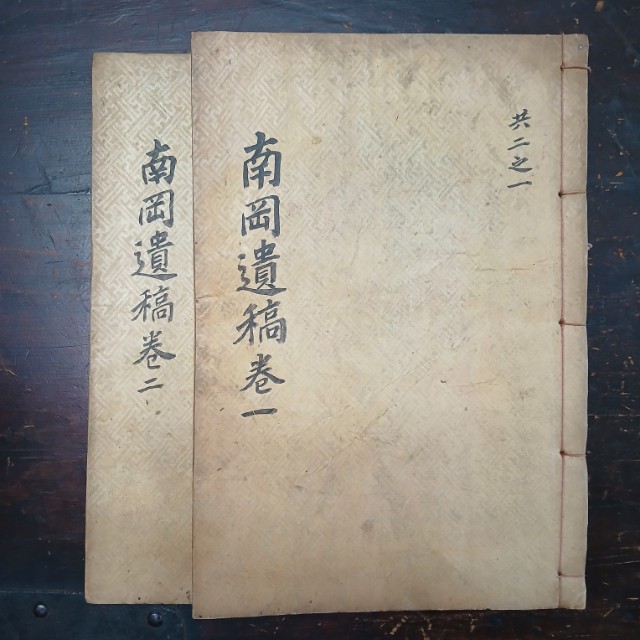 共二之一
南岡遺稿卷一
南岡遺稿卷二